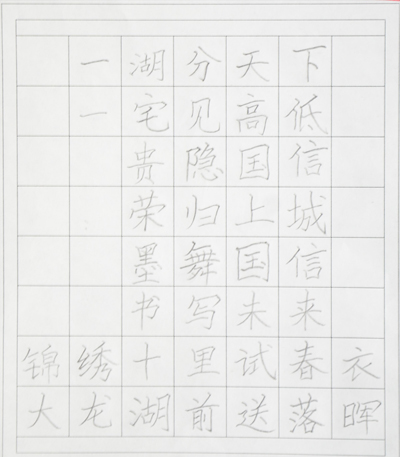 一湖分天下
一宅见高低
贵隐国信
荣归上城
墨舞国信
书写未来
锦绣十里试春衣
大龙湖前送落晖